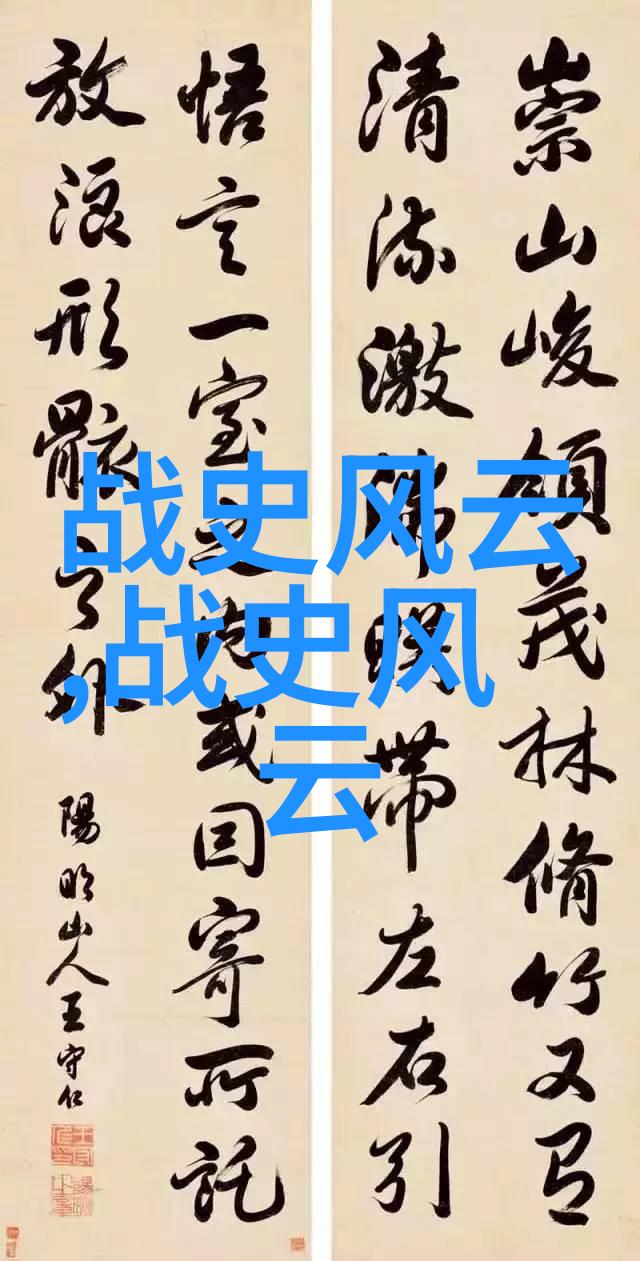 崇山峻領茂林脩竹又有
清流激湍暎帶左右引
悟言一室之或因寄所託
放浪形骸之外
陽明山人王守仁
战史风云
,战史风
云